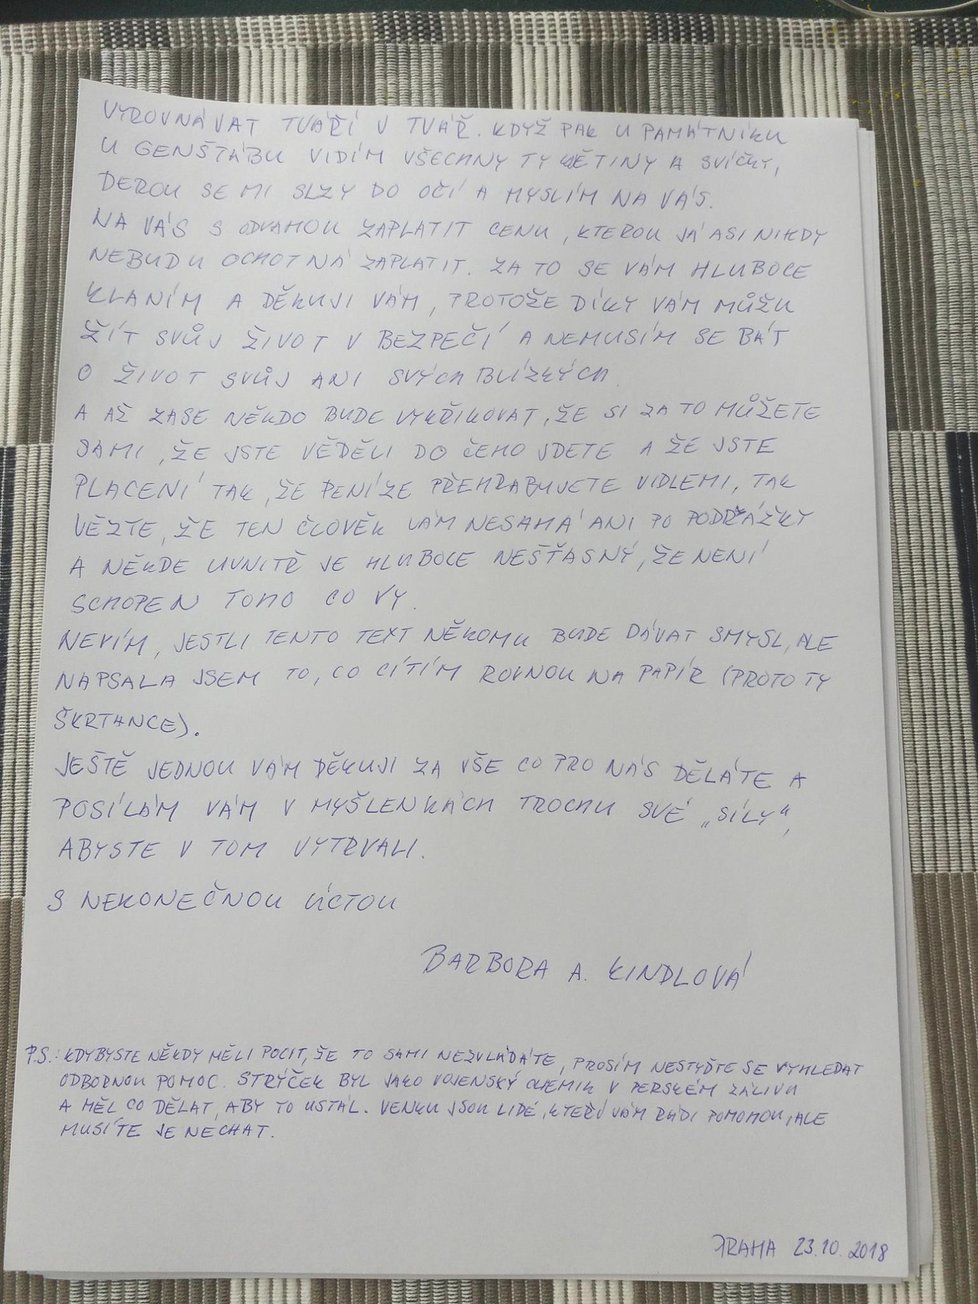 VYROVNÁVAT TVÁŘÍ V TVÁŘ. KDYŽ PAK U PAMÁTNÍKU
U GENŠTÁBU VIDÍM VŠECHNY TY KĚTINY A SVÍČKY,
DEROU SE MI SLZY DO OČÍ A MYSLÍM NA VÁS.
NA VÁS S ODVAHOU ZAPLATIT CENU, KTEROU JÁ ASI NIKDY
NEBUDU OCHOTNÁ ZAPLATIT. ZA TO SE VÁM HLUBOCE
KLANÍM A DĚKUJI VÁM, PROTOŽE DÍKY VÁM MŮŽU
ŽÍT SVŮJ ŽIVOT V BEZPEČÍ A NEMUSÍM SE BÁT
O ŽIVOT SVŮJ ANI SVÝCH BLÍZKÝCH.
A AŽ ZASE NĚKDO BUDE VYKŘIKOVAT, ŽE SI ZA TO MŮŽETE
SAMI, ŽE JSTE VĚDĚLI DO ČEHO JDETE A ŽE JSTE
PLACENÍ TAK, ŽE PENÍZE PŘEHRABUJETE VIDLEMI, TAK
VĚZTE, ŽE TEN ČLOVĚK VÁM NESAHÁ ANI PO PODRÁŽKY
A NĚKDE UVNITŘ JE HLUBOCE NEŠŤASNÝ, ŽE NENÍ
SCHOPEN TOHO CO VY.
NEVÍM, JESTLI TENTO TEXT NĚKOMU BUDE DÁVAT SMYSL, ALE
NAPSALA JSEM TO, CO CÍTÍM ROVNOU NA PAPÍR (PROTO TY
ŠKRTANCE).
JEŠTĚ JEDNOU VÁM DĚKUJI ZA VŠE CO PRO NÁS DĚLÁTE A
POSÍLÁM VÁM V MYŠLENKÁCH TROCHU SVÉ „SÍLY“,
ABYSTE V TOM VYTRVALI.
S NEKONEČNOU ÚCTOU
BARBORA A. KINDLOVÁ
P.S.: KDYBYSTE NĚKDY MĚLI POCIT, ŽE TO SAMI NEZVLÁDÁTE, PROSÍM NESTYĎTE SE VYHLEDAT
ODBORNOU POMOC. STRÝČEK BYL JAKO VOJENSKÝ CHEMIK V PERSKÉM ZÁLIVU
A MĚL CO DĚLAT, ABY TO USTÁL. VENKU JSOU LIDÉ, KTEŘÍ VÁM RÁDI POMOHOU, ALE
MUSÍTE JE NECHAT.
PRAHA 23.10.2018